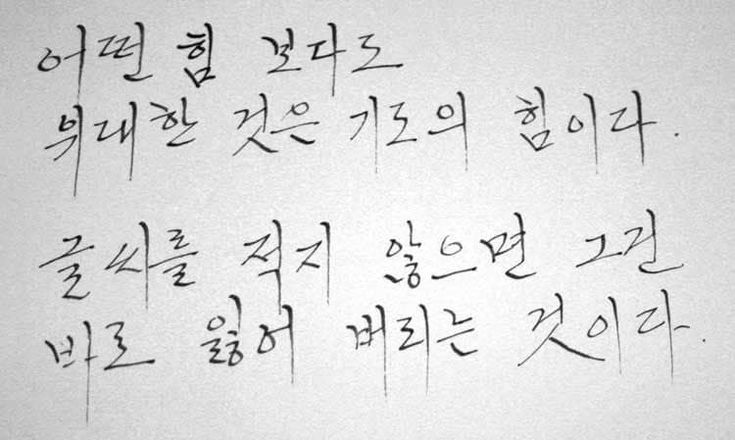 어떤 힘 보다도
위대한 것은 기도의 힘이다.
글씨를 적지 않으면 그건
바로 잃어 버리는 것이다.